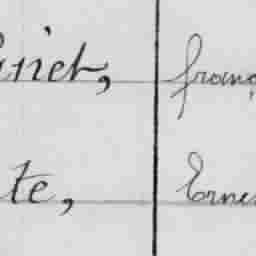 riet, franç
te, Ernes